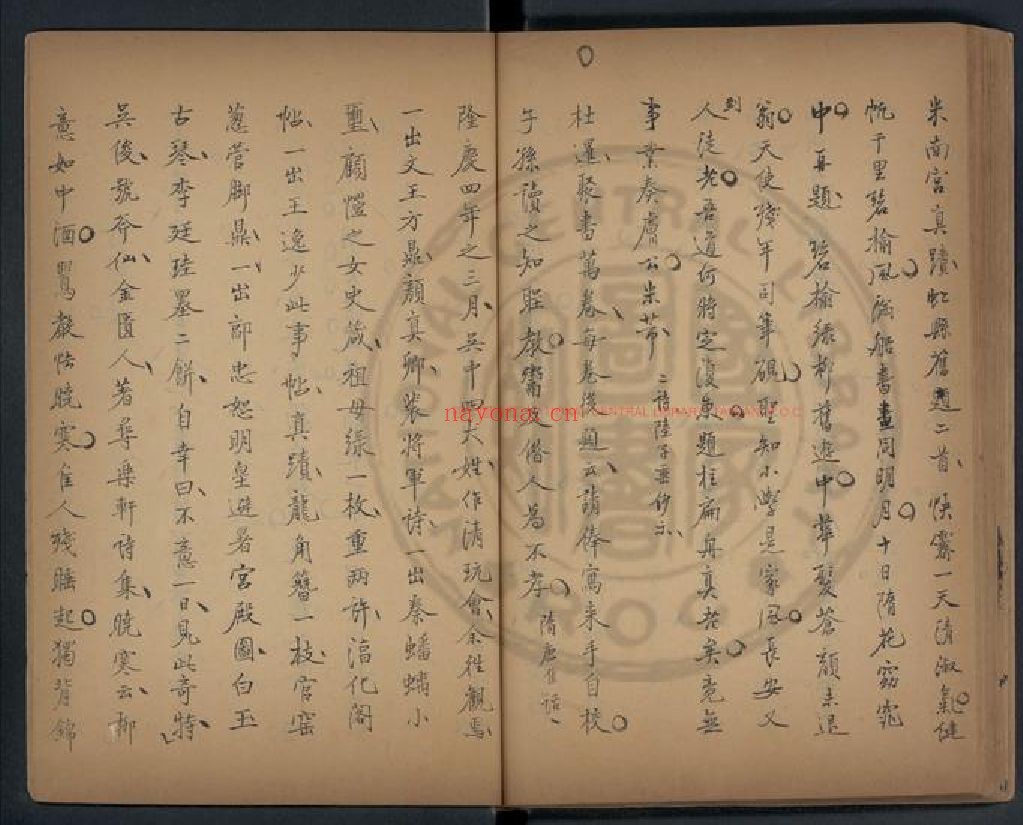 米南宮真蹟虹縣舊題二首快霽一天清淑氣健
帆千里碧榆風滿船書畫同明月十日隋花窈窕
中再題碧榆綠柳舊遊中華髮蒼顏未退
翁天使殘年司筆硯聖知小學是家風長安又
到
人徒老吾道何將定復東題柱扁舟真老矣竟無
事業奏膚公米芾二詩陸子垂抄示
杜暹聚書萬卷每卷後題云請俸寫來手自校
子孫讀之知聖教鬻及借人為不孝隋唐佳話
隆慶四年之三月吳中四大姓作清玩會余往觀焉
一出文王方鼎顏真卿裴將軍詩一出秦蟠螭小
璽顧愷之女史箴祖母綠一枚重兩許淳化閣
帖一出王逸少此事帖真蹟龍角簪一枝官窑
葱管脚鼎一出郭忠恕明皇避暑宮殿圖白玉
古琴李廷珪墨二餅自幸曰不意一日見此奇特
吳俊號斧仙金匱人著尋樂軒詩集曉寒云柳
意如中酒鶯聲怯曉寒隹人殘睡起獨背錦
nayona.cn